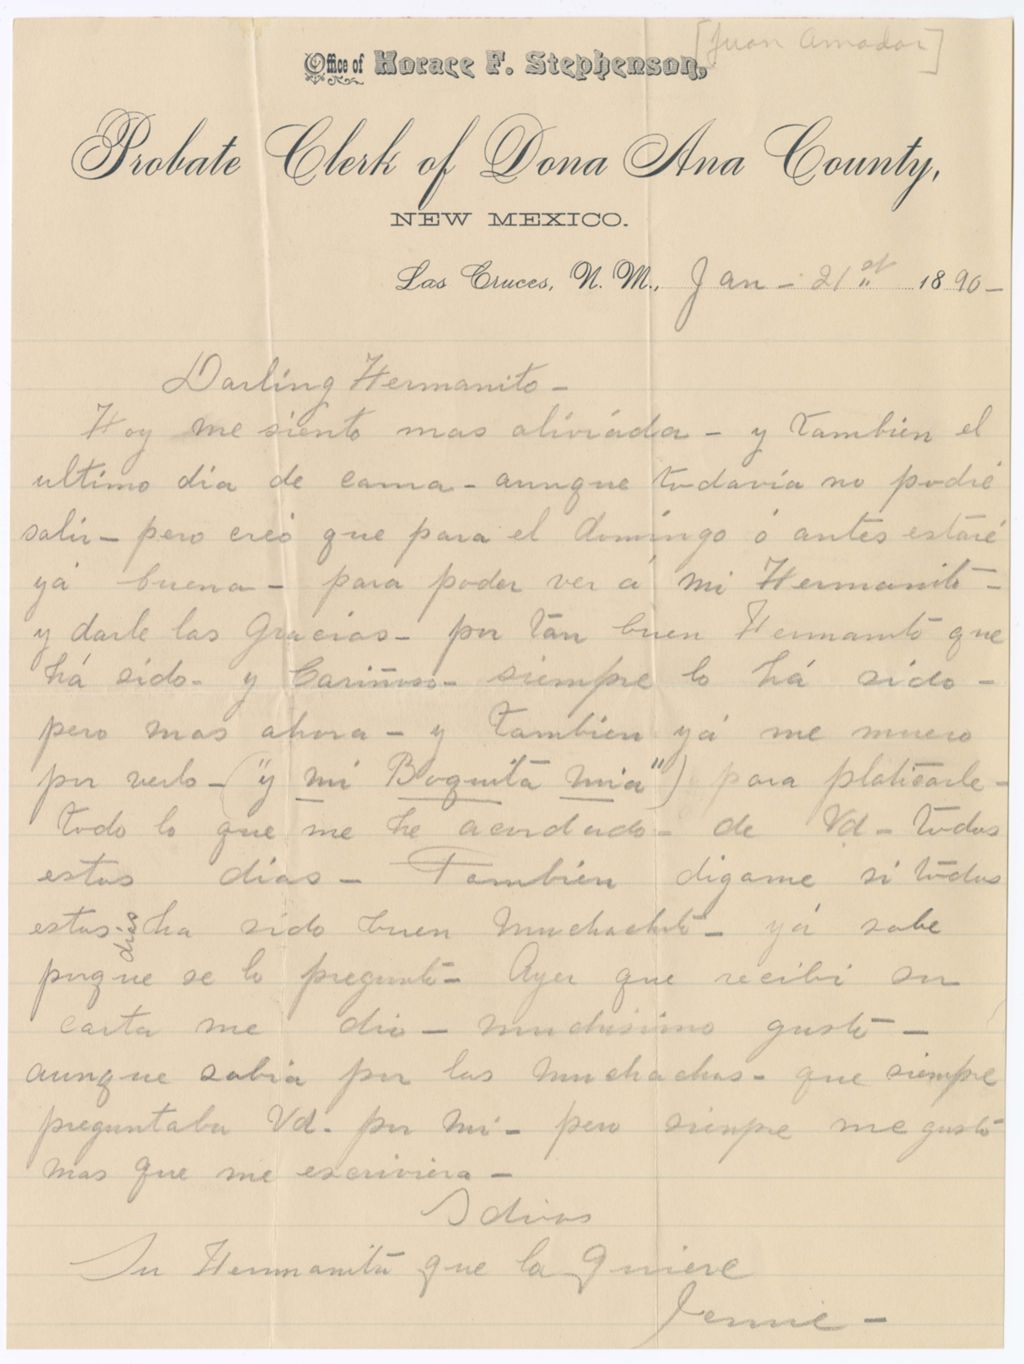 [Juan Amador]
Office of Horace F. Stephenson,
Probate Clerk of Dona Ana County,
NEW MEXICO.
Las Cruces, N. M., Jan - 21st 1890-
Darling Hermanito -
Hoy me siento mas aliviada - y tambien el
ultimo dia de cama - aunque todavia no podré
salir - pero creó que para el domingo ó antes estaré
yá buena - para poder ver á mi Hermanito -
y darle las Gracias - por tan buen Hermanito que
há sido - y Cariñoso - siempre lo há sido -
pero mas ahora - y tambien yá me muero
por verlo - ("y mi Boquita mia") para platicarle -
todo lo que me he acordado - de Vd - todos
estos dias - Tambien digame si todos
estos dias ha sido buen muchachito - yá sabe
porque se lo pregunto - Ayer que recibi su
carta me dio - muchisimo gusto -
aunque sabia por las muchachas - que siempre
preguntaba Vd. por mi - pero siempre me gusto
mas que me escriviera -
Adios
Su Hermanita que la Quiere
Jennie -